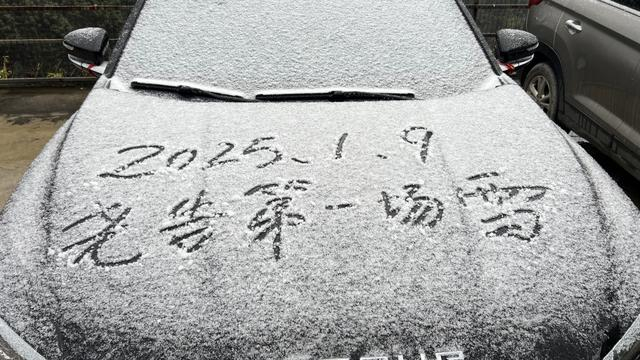 2025.1.9
光告第一场雪